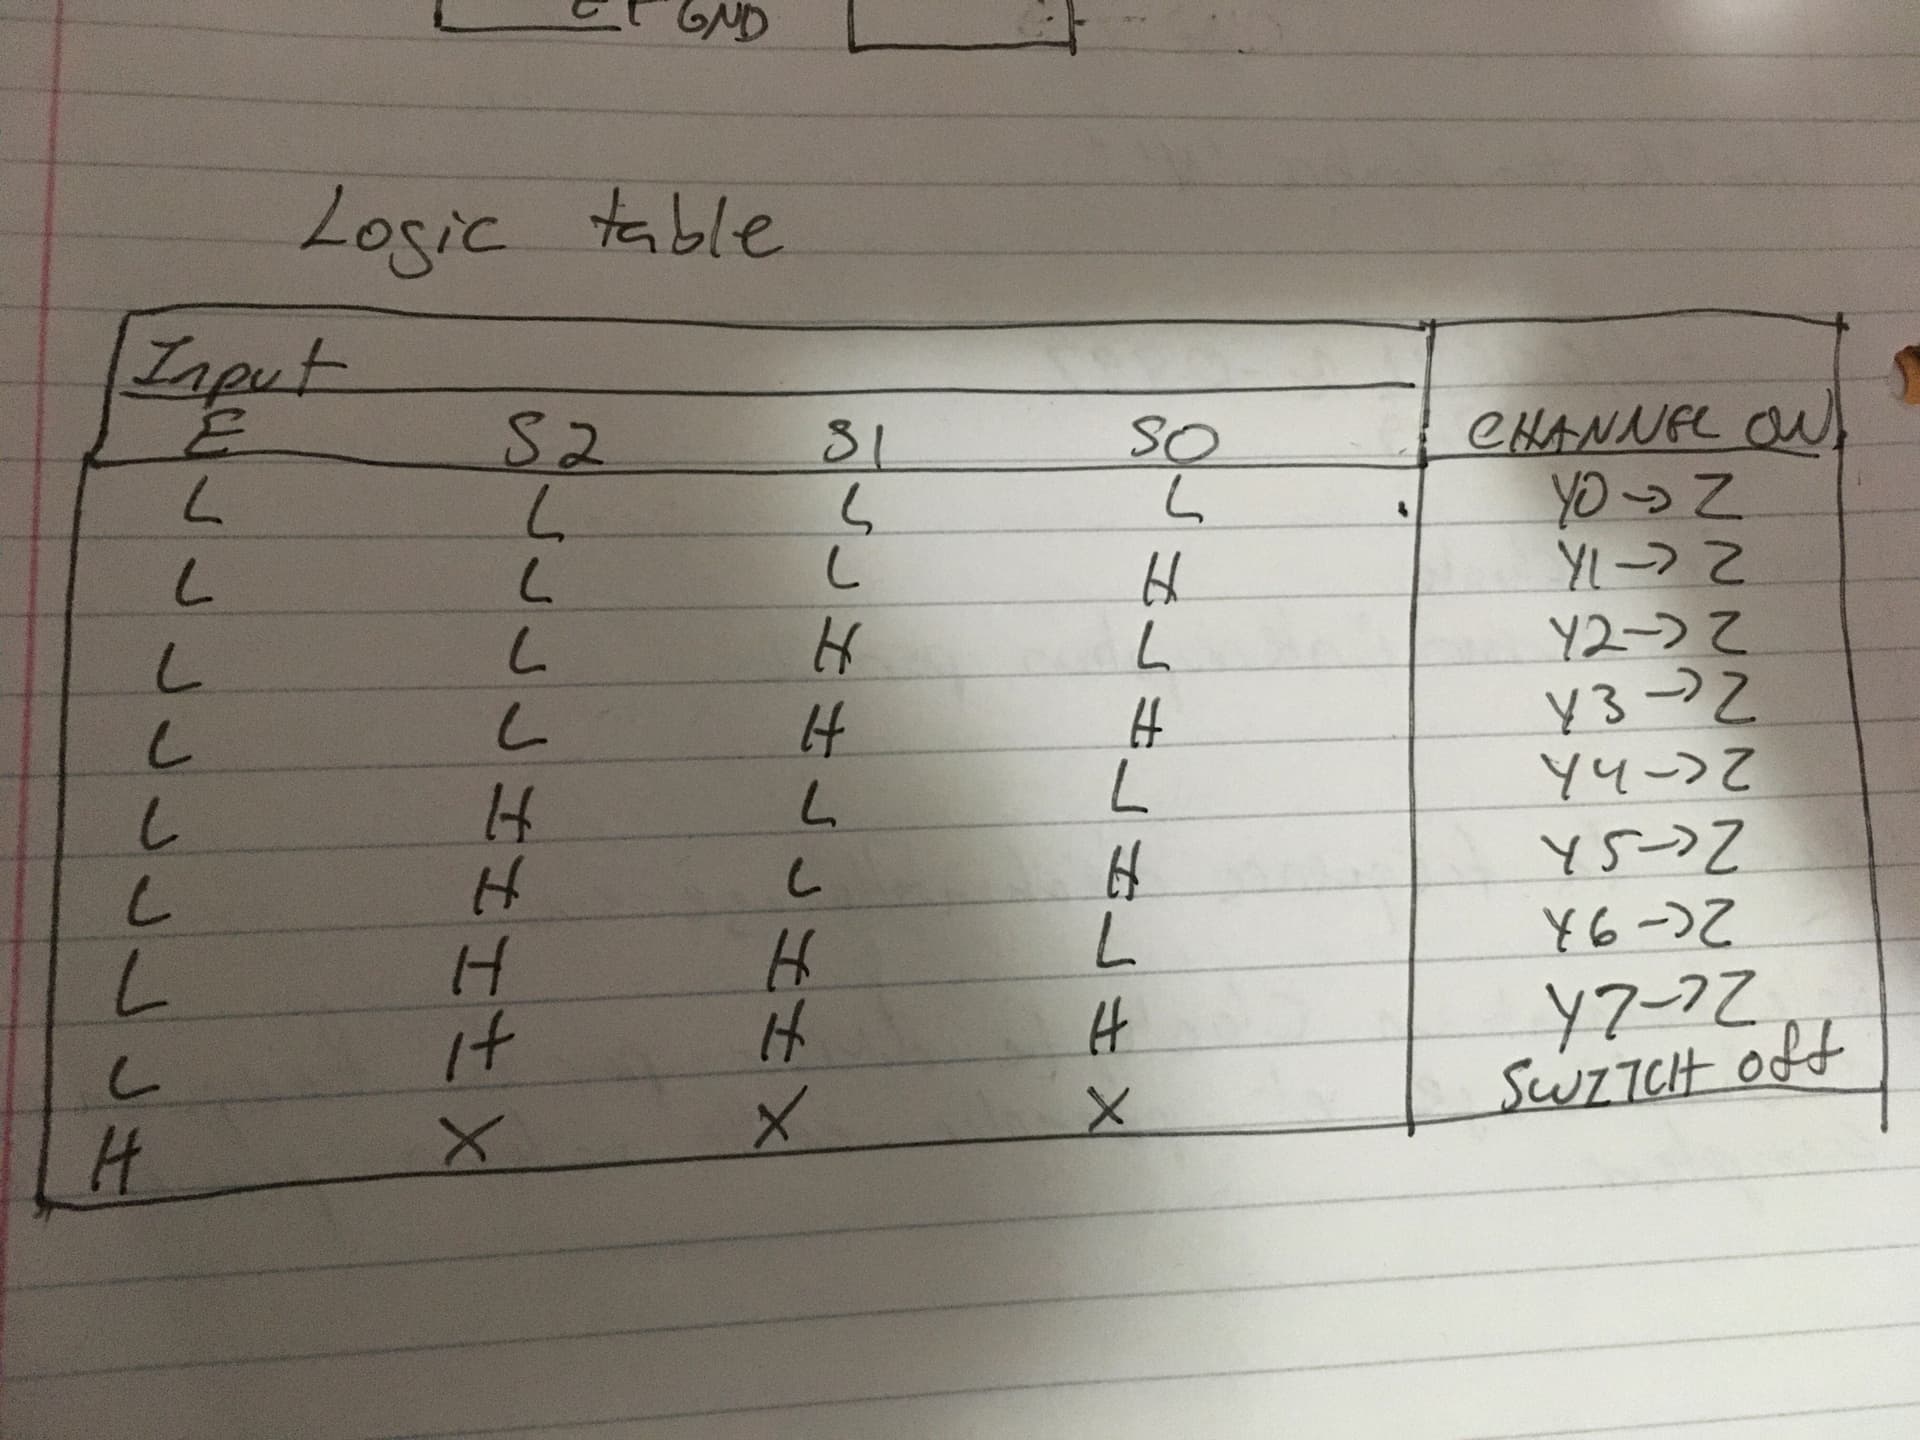 GND
Logic table
Input
E S2 S1 S0 CHANNEL ON
L L L L Y0→Z
L L L H Y1→Z
L L H L Y2→Z
L L H H Y3→Z
L H L L Y4→Z
L H L H Y5→Z
L H H L Y6→Z
L H H H Y7→Z
H X X X SWITCH off